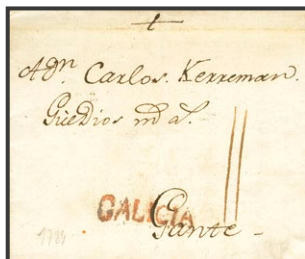 A Dn. Carlos. Kerreman.
Güe Dios ms as.
GALICIA
Gante -
1784